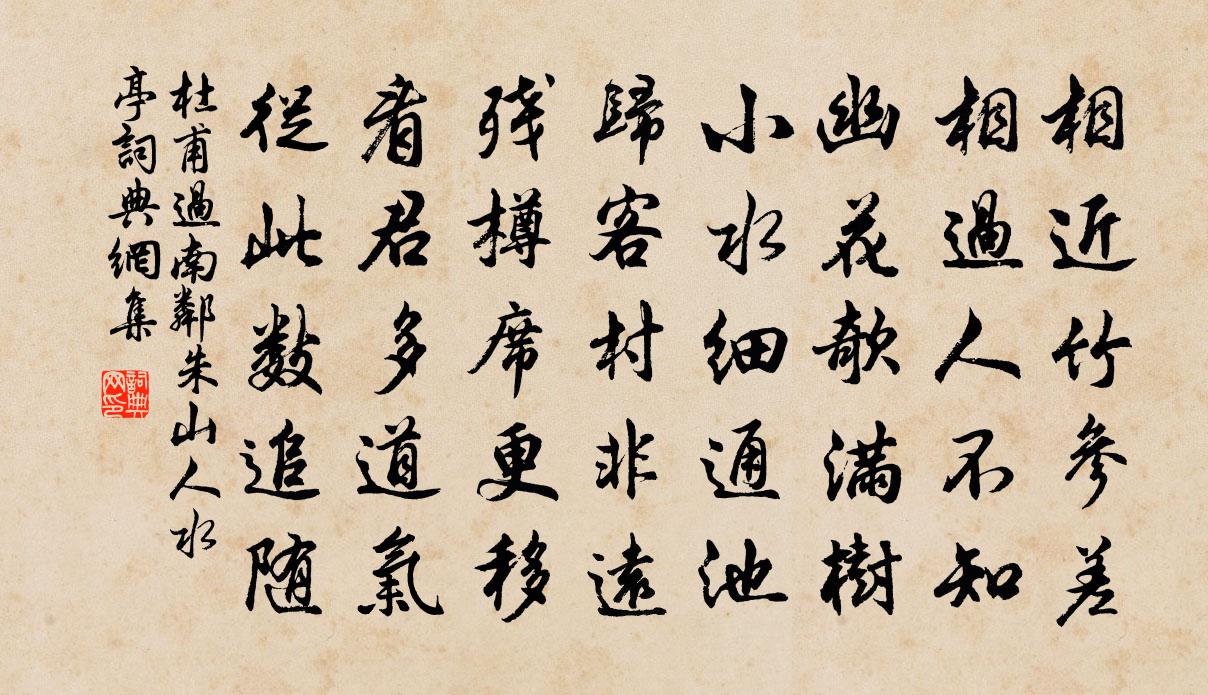 相近竹參差
相過人不知
幽花欹滿樹
小水細通池
歸客村非遠
残樽席更移
看君多道氣
從此數追随
杜甫過南鄰朱山人水
亭詞典網集
詞典
网印